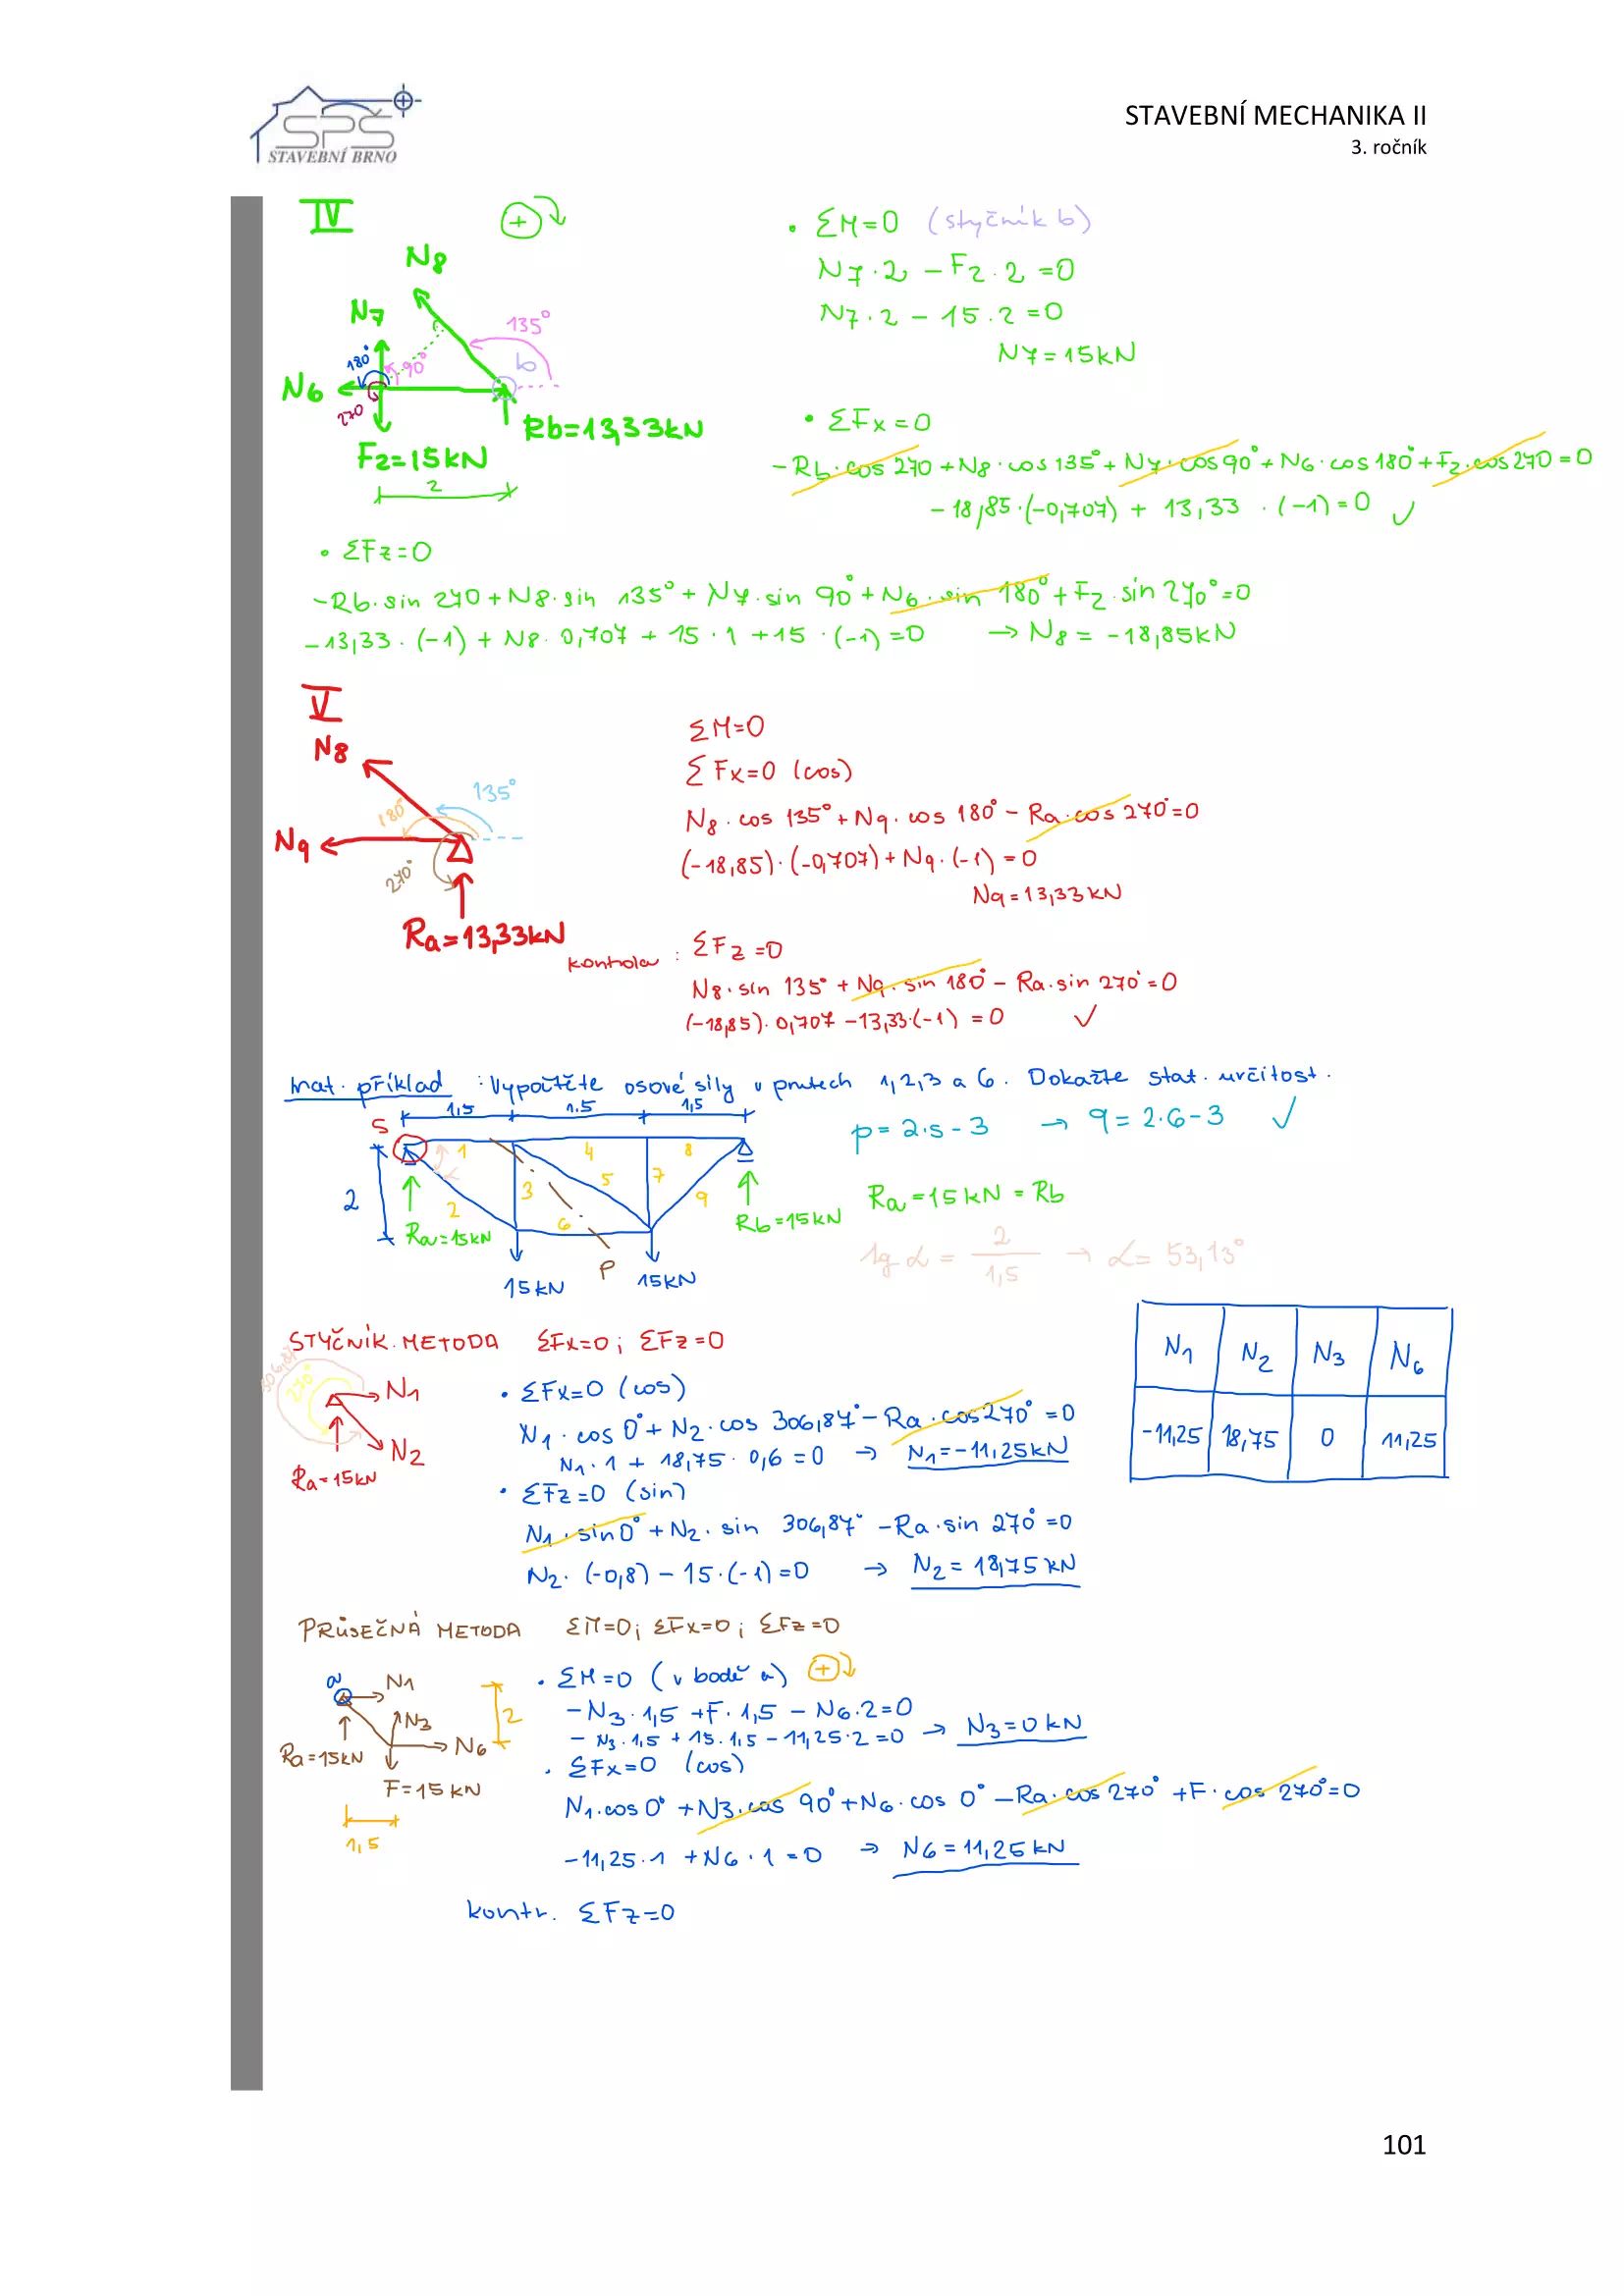 SPŠ
STAVEBNÍ BRNO
STAVEBNÍ MECHANIKA II
3. ročník
IV
+
N8
N7
135°
180°
90°
b
N6
270
Rb=13,33kN
F2=15kN
2
• ΣM=0 (styčník b)
N7·2 - F2·2 =0
N7·2 - 15·2 =0
N7=15kN
• ΣFx=0
-Rb·cos 270+N8·cos 135°+N7·cos 90°+N6·cos 180°+F2·cos 270=0
-18,85·(-0,707) + 13,33 ·(-1)=0 ✓
• ΣFz=0
-Rb·sin 270+N8·sin 135°+N7·sin 90°+N6·sin 180°+F2·sin 270°=0
-13,33·(-1) + N8·0,707 + 15·1 +15·(-1)=0 → N8 = -18,85kN
V
N8
135°
180°
N9
270°
Ra=13,33kN
ΣM=0
ΣFx=0 (cos)
N8·cos 135°+N9·cos 180° - Ra·cos 270°=0
(-18,85)·(-0,707)+N9·(-1)=0
N9=13,33kN
kontrola : ΣFz=0
N8·sin 135° + N9·sin 180° - Ra·sin 270°=0
(-18,85)·0,707 -13,33·(-1) =0 ✓
mat. příklad : Vypočtěte osové síly v prutech 1,2,3 a 6. Dokažte stat. určitost.
1,5 1,5 1,5
S
1 4 8
α
2
3 5 7
2 6 9
Ra=15kN
Rb=15kN
15kN P 15kN
p=2·s-3 → 9=2·6-3 ✓
Ra=15kN=Rb
tg α = 2/1,5 → α= 53,13°
STYČNÍK. METODA ΣFx=0; ΣFz=0
306,87
270°
N1
N2
Ra=15kN
• ΣFx=0 (cos)
N1·cos 0°+N2·cos 306,87°-Ra·cos270°=0
N1·1 + 18,75·0,6=0 → N1=-11,25kN
• ΣFz=0 (sin)
N1·sin0°+N2·sin 306,87° -Ra·sin 270°=0
N2·(-0,8) - 15·(-1)=0 → N2= 18,75kN
N1 N2 N3 N6
-11,25 18,75 0 11,25
PRŮSEČNÁ METODA ΣM=0; ΣFx=0; ΣFz=0
a
N1
N3
2
N6
Ra=15kN
F=15kN
1,5
• ΣM=0 (v bodě a) +
-N3·1,5 +F·1,5 - N6·2=0
- N3·1,5 + 15·1,5 - 11,25·2=0 → N3=0kN
• ΣFx=0 (cos)
N1·cos 0° +N3·cos 90°+N6·cos 0° -Ra·cos 270° +F·cos 270°=0
-11,25·1 +N6·1=0 → N6=11,25kN
kontr. ΣFz=0
101